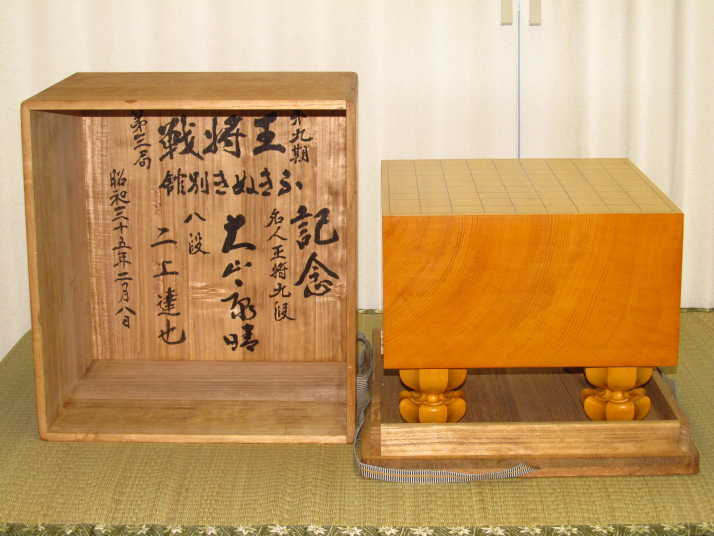 第九期
王将戦
第三局
ふきぬき別館
記念
名人王将九段
大山康晴
八段
二上達也
昭和三十五年二月八日